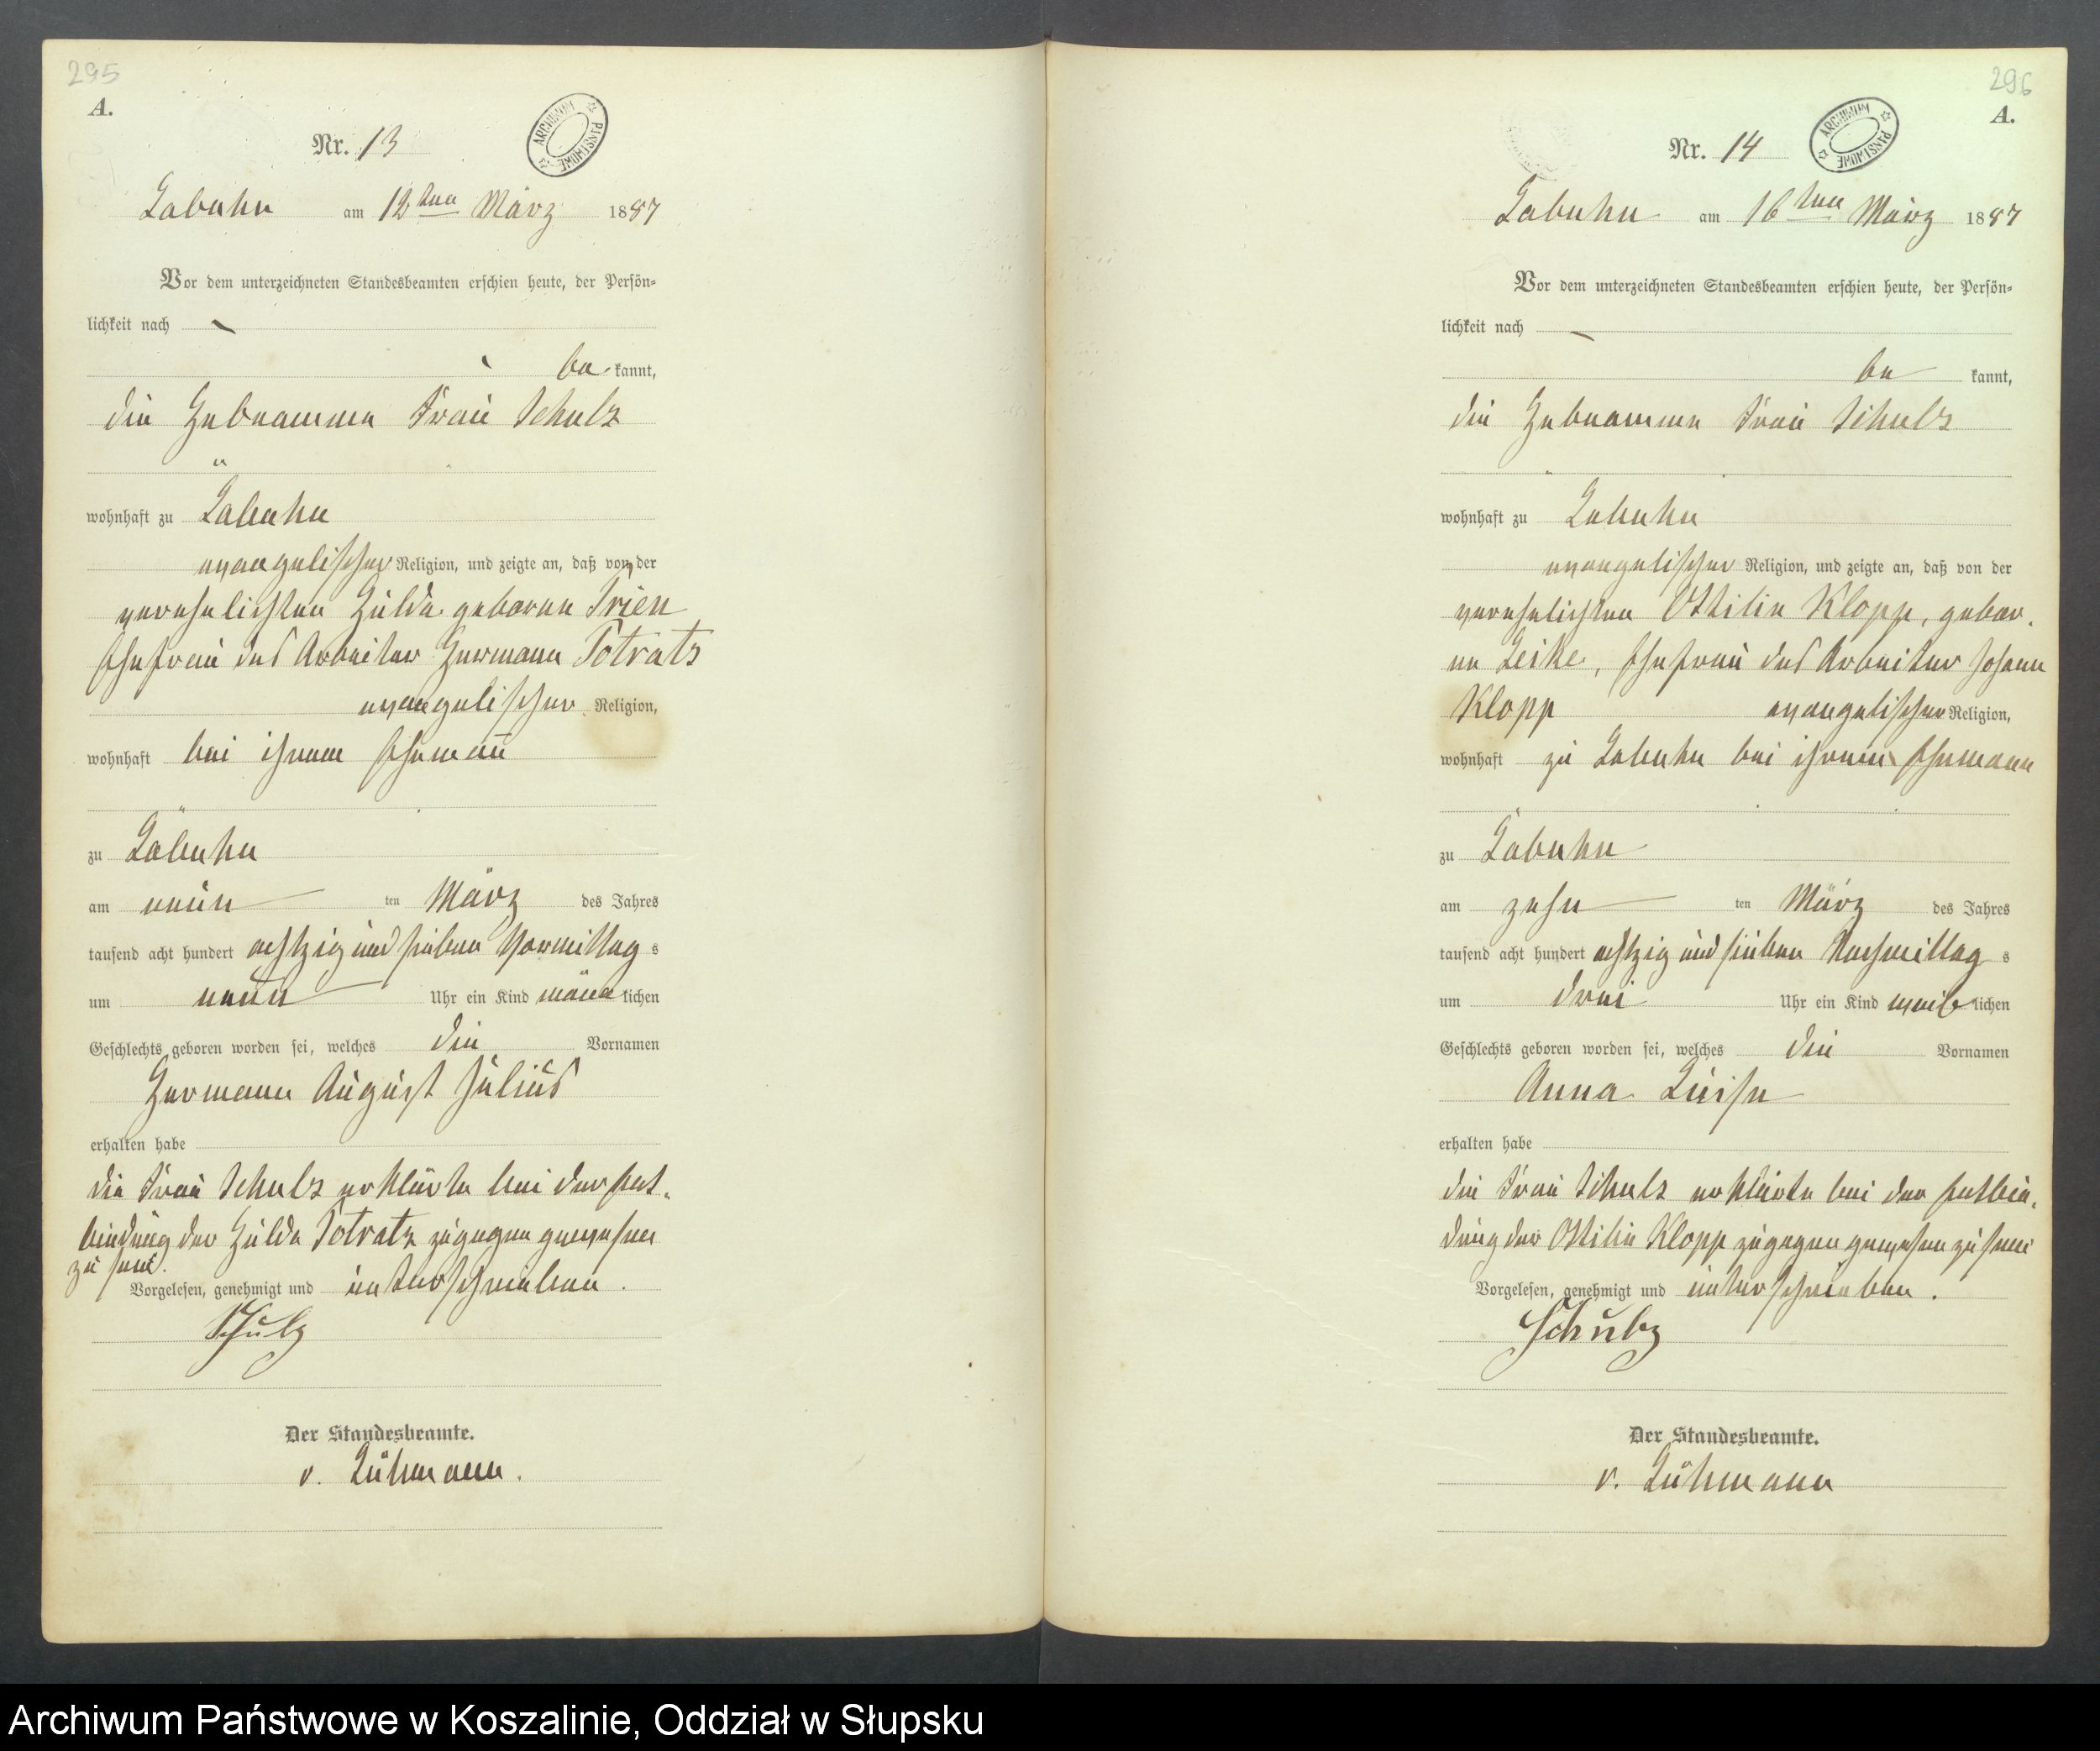 295
A.
Nr. 13
ARCHIWUM PAŃSTWOWE
Labuhn am 12ten März 1887
Vor dem unterzeichneten Standesbeamten erschien heute, der Persön-
lichkeit nach
be kannt,
die Hebeamme Frau Schulz
wohnhaft zu Labuhn
evangelischer Religion, und zeigte an, daß von der
verehelichten Hulda geborene Trien
Ehefrau des Arbeiter Hermann Potratz
evangelischer Religion,
wohnhaft bei ihrem Ehemann
zu Labuhn
am neun ten März des Jahres
tausend acht hundert achtzig und sieben Vormittag s
um neun Uhr ein Kind männ lichen
Geschlechts geboren worden sei, welches die Vornamen
Hermann August Julius
erhalten habe
die Frau Schulz erklärte bei der Ent-
bindung der Hulda Potratz zugegen gewesen
zu sein.
Vorgelesen, genehmigt und unterschrieben.
Schulz
Der Standesbeamte.
v. Lühmann.
296
A.
Nr. 14
ARCHIWUM PAŃSTWOWE
Labuhn am 16ten März 1887
Vor dem unterzeichneten Standesbeamten erschien heute, der Persön-
lichkeit nach
be kannt,
die Hebeamme Frau Schulz
wohnhaft zu Labuhn
evangelischer Religion, und zeigte an, daß von der
verehelichten Ottilie Klopp, gebor-
ne Leike, Ehefrau des Arbeiter Johann
Klopp evangelischer Religion,
wohnhaft zu Labuhn bei ihrem Ehemann
zu Labuhn
am zehn ten März des Jahres
tausend acht hundert achtzig und sieben Nachmittag s
um drei Uhr ein Kind weib lichen
Geschlechts geboren worden sei, welches die Vornamen
Anna Luise
erhalten habe
die Frau Schulz erklärte bei der Entbin-
dung der Ottilie Klopp zugegen gewesen zu sein
Vorgelesen, genehmigt und unterschrieben.
Schulz
Der Standesbeamte.
v. Lühmann
Archiwum Państwowe w Koszalinie, Oddział w Słupsku